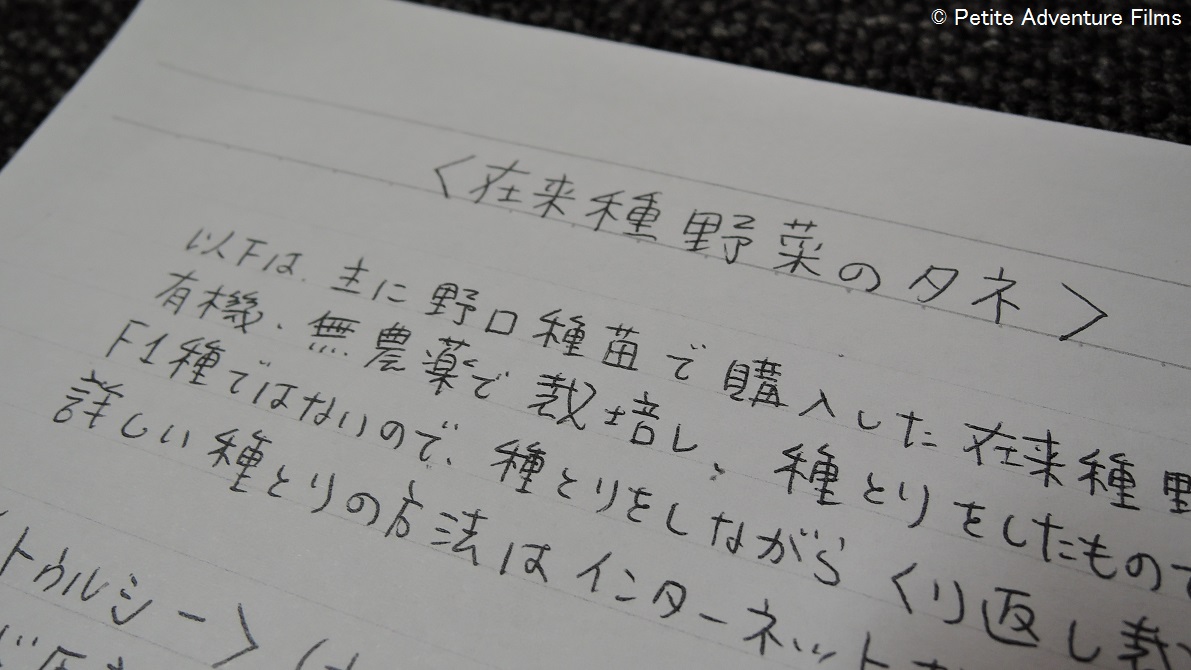 © Petite Adventure Films
〈在来種野菜のタネ〉
以下は、主に野口種苗で購入した在来種野
有機、無農薬で栽培し、種とりをしたもので
F1種ではないので、種とりをしながらくり返し栽
詳しい種とりの方法はインターネット
トゥルシー〉